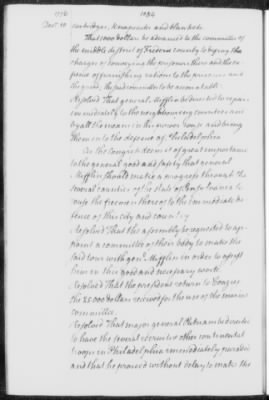 1776 1034
Dec. 10 cartridges, knapsacks and blankets.
That 1000 dollars be advanced to the committee of
the middle district of Frederic county to defray the
charges of conveying the prisoners there and the ex-
pence of furnishing rations to the prisoners and
the guard; the said committee to be accountable.
Resolved That general Mifflin be directed to repair
immediately to the neighbouring counties and
by all the means in his power rouse and bring
them in to the defence of Philadelphia
As the Congress deem it of great importance
to the general good and safety that general
Mifflin should make a progress through the
several counties of the state of Pensylvania to
rouse the freemen thereof to the immediate de
fence of this city and country
Resolved That the assembly be requested to ap-
point a committee of their body to make the
said tour with gen. Mifflin in order to assist
him in this good and necessary work.
Resolved That the president return to Congress
the 25.000 dollars received for the use of the marine
committee.
Resolved That major general Putnam be directed
to have the several recruits & other continental
troops in Philadelphia immediately paraded
and that he proceed without delay to make the